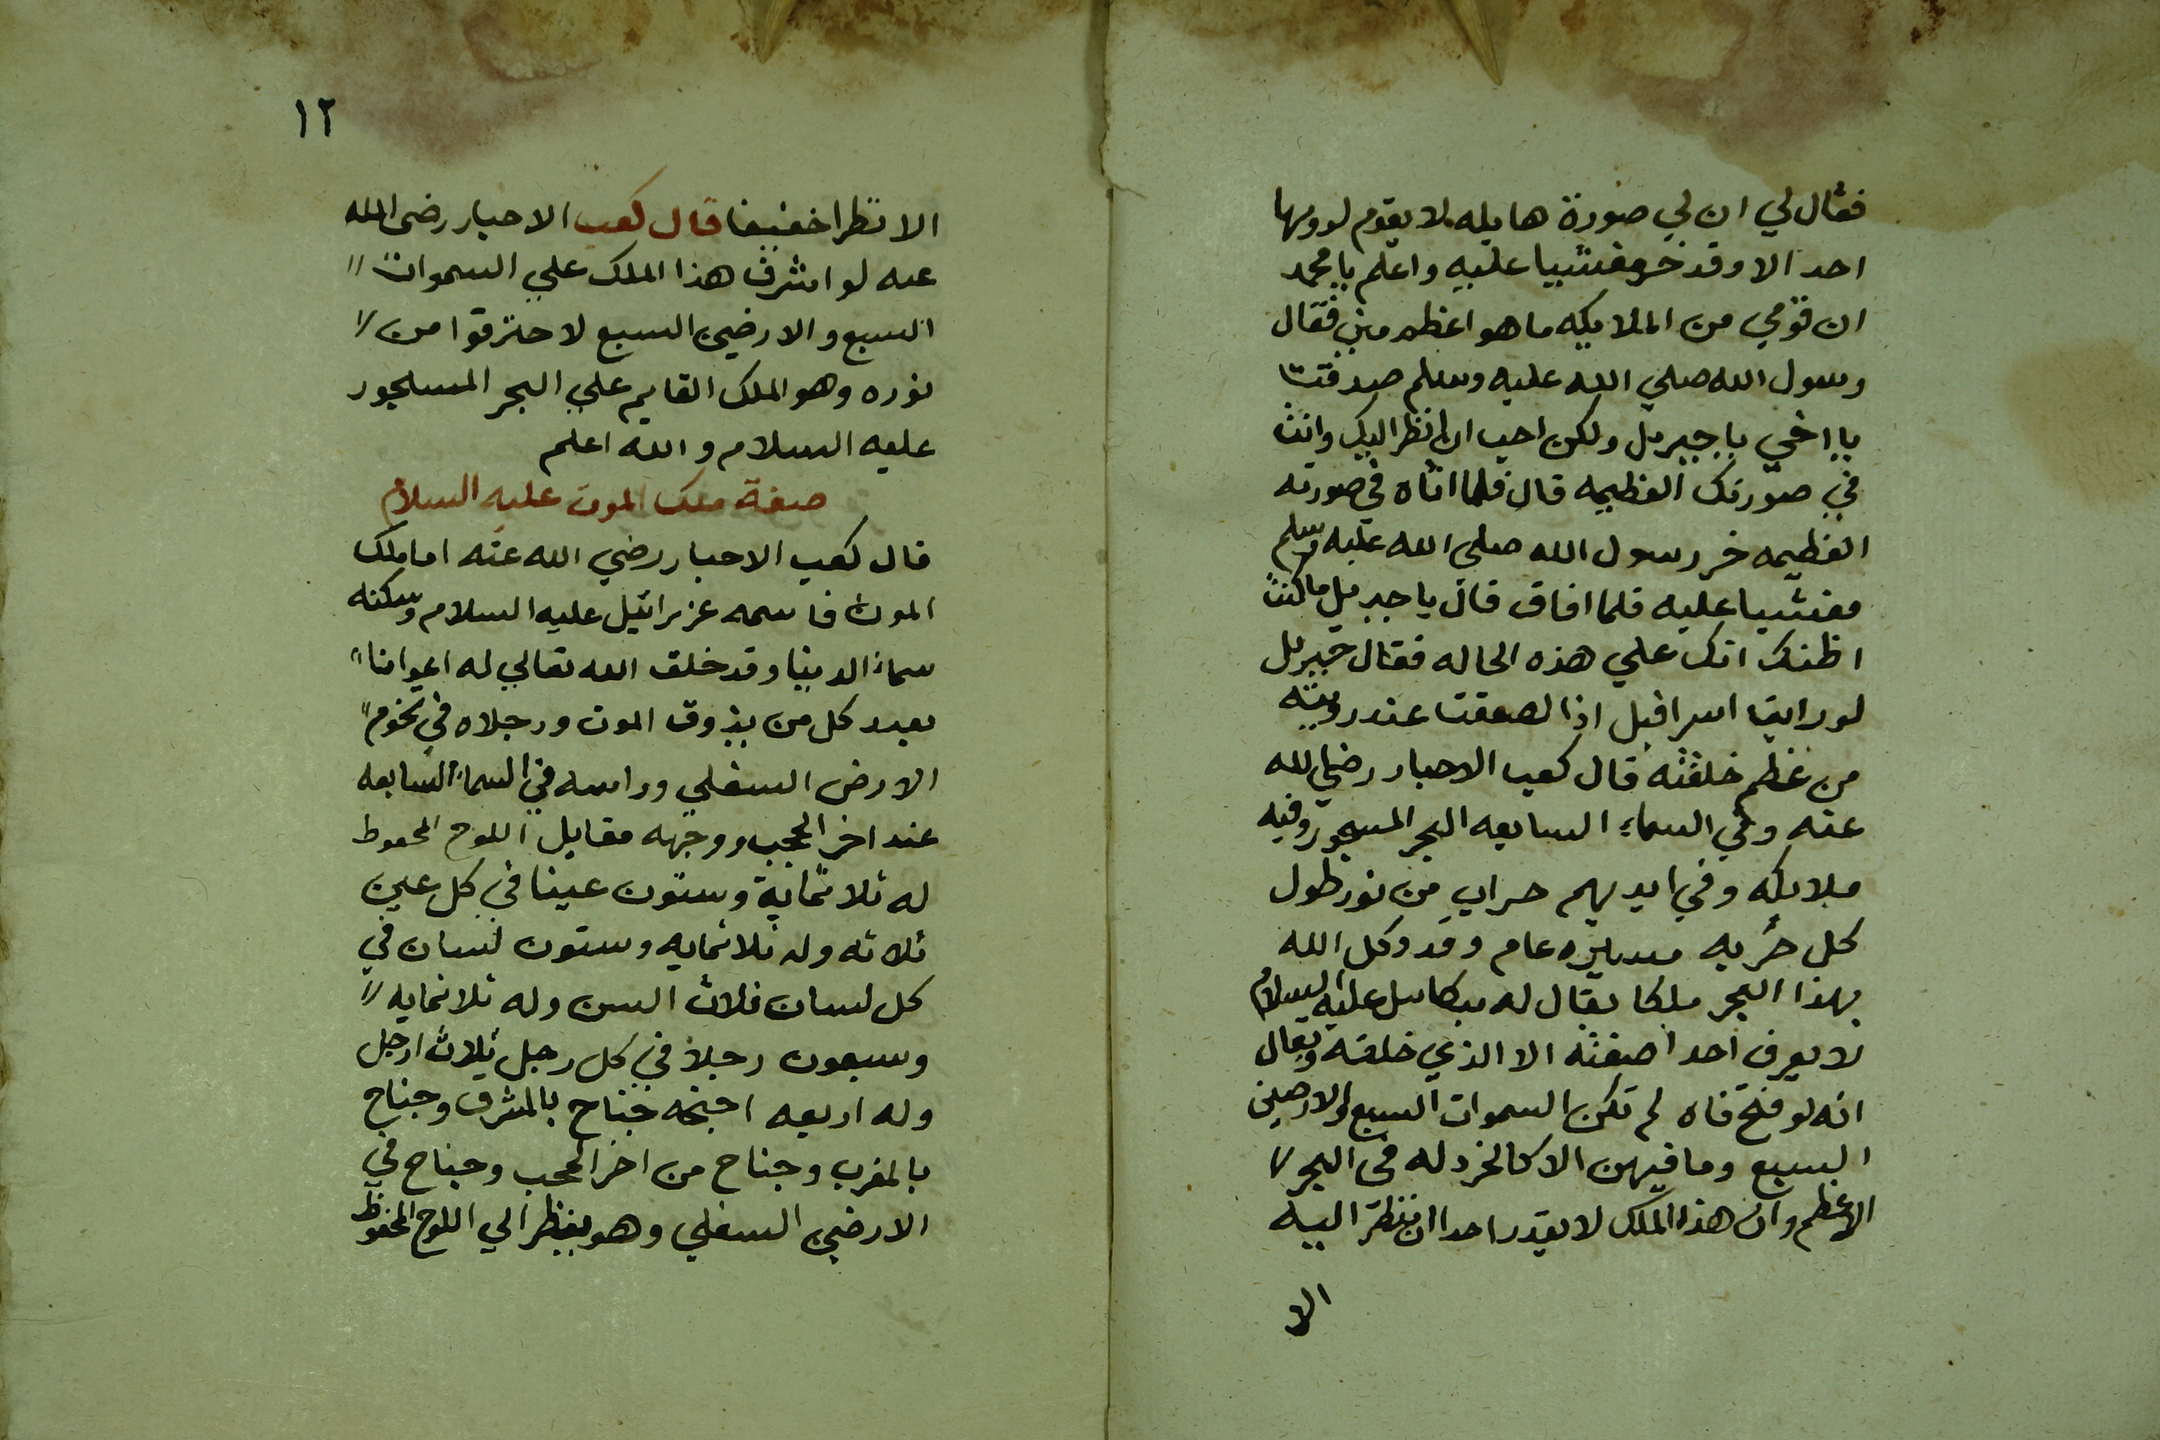 فقال لي ان لي صورة هايله لا يقوم لرويها
احد الا وقد خر مغشيا عليه واعلم يا محمد
ان قومي من الملايكه ما هو اعظم مني فقال
رسول الله صلي الله عليه وسلم صدقت
يا اخي يا جبريل ولكن احب ان انظر اليك وانت
في صورتك العظيمه قال فلما اتاه في صورته
العظيمه خر رسول الله صلى الله عليه وسلم
مغشيا عليه فلما افاق قال يا جبريل ما كنت
اظنك انك علي هذه الحاله فقال جبريل
لو رايت اسرافيل اذا لصعقت عند رويته
من عظم خلقته قال كعب الاحبار رضي الله
عنه وفي السماء السابعه البحر المسجور وفيه
ملايكه وفي ايديهم حراب من نور طول
كل حربه مسيرة عام وقد وكل الله
بهذا البحر ملكا يقال له ميكاييل عليه السلام
لا يعرف احدا صفته الا الذي خلقه ويقال
انه لو فتح فاه لم تكن السموات السبع والارضين
السبع وما فيهن الا كالخردله في البحر //
الاعظم وان هذا الملك لا يقدر احدا ان ينظر اليه
الا
١٢
الا نظرا خفيفا قال كعب الاحبار رضى الله
عنه لو اشرف هذا الملك علي السموات //
السبع والارضين السبع لاحترقوا من //
نوره وهو الملك القايم علي البحر المسجور
عليه السلام والله اعلم
صفة ملك الموت عليه السلام
قال كعب الاحبار رضي الله عنه اما ملك
الموت فاسمه عزرائيل عليه السلام وسكنه
سماء الدنيا وقد خلق الله تعالي له اعوانا //
بعدد كل من يذوق الموت ورجلاه في تخوم //
الارض السفلي وراسه في السماء السابعه
عند اخر الحجب ووجهه مقابل اللوح المحفوظ
له ثلاثماية وستون عينا في كل عين
ثلاثه وله ثلاثمايه وستون لسان في
كل لسان ثلاث السن وله ثلاثمايه //
وسبعون رجلا في كل رجل ثلاث ارجل
وله اربعه اجنحه جناح بالمشرق وجناح
بالمغرب وجناح من اخر الحجب وجناح في
الارضين السفلي وهو ينظر الي اللوح المحفوظ